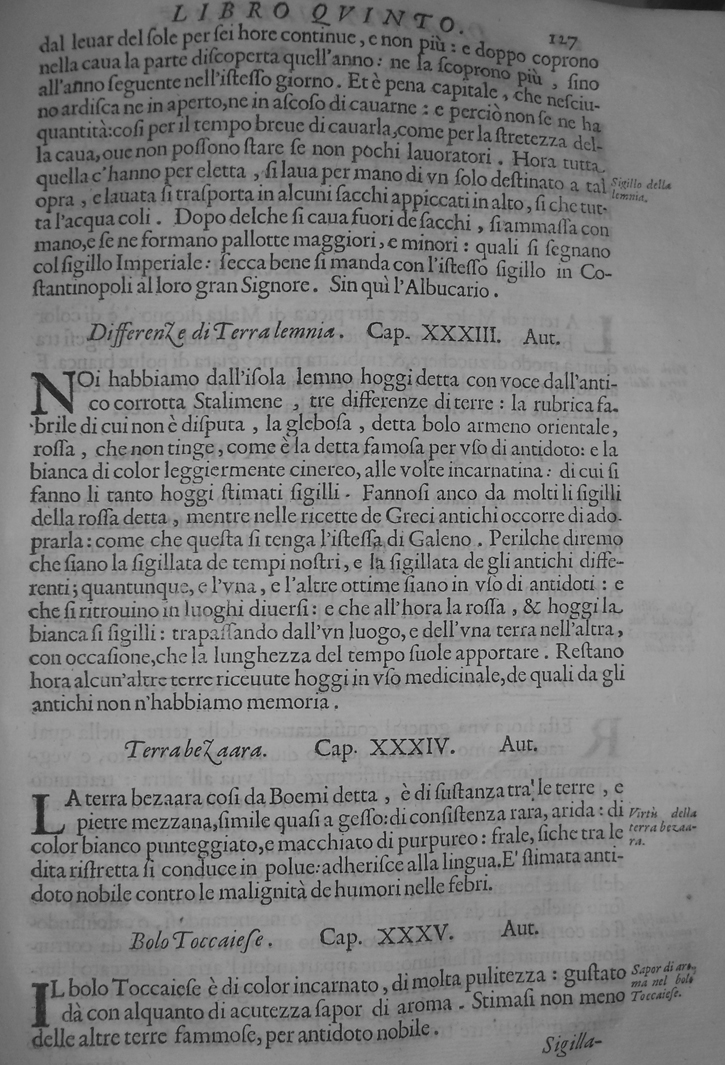 LIBRO QVINTO.
127
dal leuar del ſole per ſei hore continue, e non più: e doppo coprono
nella caua la parte diſcoperta quell'anno: ne la ſcoprono più, ſino
all'anno ſeguente nell'iſteſſo giorno. Et è pena capitale, che neſciu-
no ardiſca ne in aperto, ne in aſcoſo di cauarne: e perciò non ſe ne ha
quantità: coſi per il tempo breue di cauarla, come per la ſtretezza del-
la caua, oue non poſſono ſtare ſe non pochi lauoratori. Hora tutta
quella c'hanno per eletta, ſi laua per mano di vn ſolo deſtinato a tal
opra, e lauata ſi traſporta in alcuni ſacchi appiccati in alto, ſi che tut-
ta l'acqua coli. Dopo delche ſi caua fuori de ſacchi, ſi ammaſſa con
mano, e ſe ne formano pallotte maggiori, e minori: quali ſi ſegnano
col ſigillo Imperiale: ſecca bene ſi manda con l'iſteſſo ſigillo in Co-
ſtantinopoli al loro gran Signore. Sin quì l'Albucario.
Sigillo della
lemnia.
Differenze di Terra lemnia. Cap. XXXIII. Aut.
NOi habbiamo dall'iſola lemno hoggi detta con voce dall'anti-
co corrotta Stalimene, tre differenze di terre: la rubrica fa-
brile di cui non è diſputa, la gleboſa, detta bolo armeno orientale,
roſſa, che non tinge, come è la detta famoſa per vſo di antidoto: e la
bianca di color leggiermente cinereo, alle volte incarnatina: di cui ſi
fanno li tanto hoggi ſtimati ſigilli. Fannoſi anco da molti li ſigilli
della roſſa detta, mentre nelle ricette de Greci antichi occorre di ado-
prarla: come che queſta ſi tenga l'iſteſſa di Galeno. Perilche diremo
che ſiano la ſigillata de tempi noſtri, e la ſigillata de gli antichi diffe-
renti; quantunque, e l'vna, e l'altre ottime ſiano in vſo di antidoti: e
che ſi ritrouino in luoghi diuerſi: e che all'hora la roſſa, & hoggi la
bianca ſi ſigilli: trapaſſando dall'vn luogo, e dell'vna terra nell'altra,
con occaſione, che la lunghezza del tempo ſuole apportare. Reſtano
hora alcun'altre terre riceuute hoggi in vſo medicinale, de quali da gli
antichi non n'habbiamo memoria.
Terra bezaara. Cap. XXXIV. Aut.
LA terra bezaara coſi da Boemi detta, è di ſuſtanza tra le terre, e
pietre mezzana, ſimile quaſi a geſſo: di conſiſtenza rara, arida: di
color bianco punteggiato, e macchiato di purpureo: frale, ſiche tra le
dita riſtretta ſi conduce in polue: adheriſce alla lingua. E' ſtimata anti-
doto nobile contro le malignità de humori nelle febri.
Virtù della
terra bezaa-
ra.
Bolo Toccaieſe. Cap. XXXV. Aut.
IL bolo Toccaieſe è di color incarnato, di molta pulitezza: guſtato
dà con alquanto di acutezza ſapor di aroma. Stimaſi non meno
delle altre terre fammoſe, per antidoto nobile.
Sapor di aro-
ma nel bolo
Toccaieſe.
Sigilla-